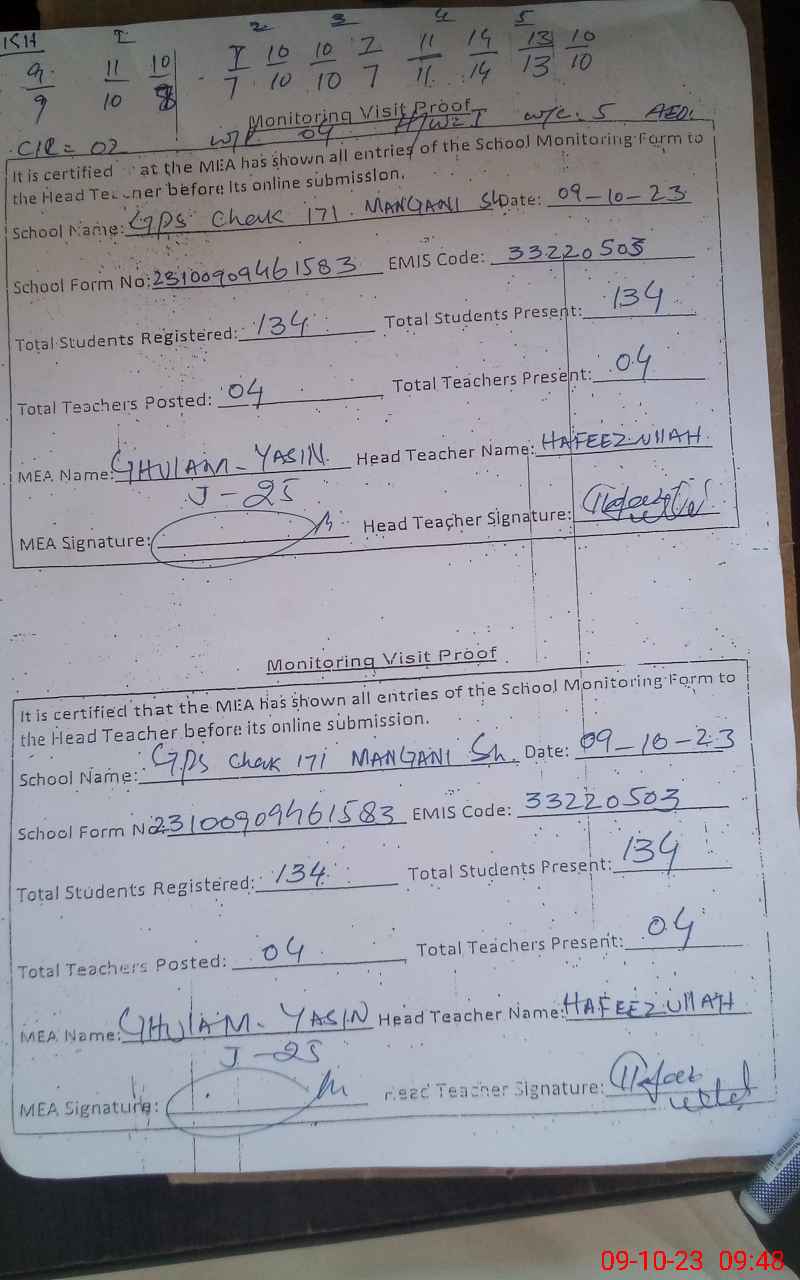 KH I 2 3 4 5
9/9 11/10 10/8 7/7 10/10 10/10 7/7 11/11 14/14 13/13 10/10
Monitoring Visit Proof
C/R = 02 04 W/C. 5
It is certified at the MEA has shown all entries of the School Monitoring Form to
the Head Teacher before its online submission.
School Name: GPS Chak 171 MANGANI Sh Date: 09-10-23
School Form No: 23100909461583 EMIS Code: 33220503
Total Students Registered: 134 Total Students Present: 134
Total Teachers Posted: 04 Total Teachers Present: 04
MEA Name: GHULAM-YASIN Head Teacher Name: HAFEEZ Ullah
J-25
MEA Signature: Head Teacher Signature:
Monitoring Visit Proof
It is certified that the MEA has shown all entries of the School Monitoring Form to
the Head Teacher before its online submission.
School Name: GPS Chak 171 MANGANI Sh. Date: 09-10-23
School Form No: 23100909461583 EMIS Code: 33220503
Total Students Registered: 134 Total Students Present: 134
Total Teachers Posted: 04 Total Teachers Present: 04
MEA Name: GHULAM-YASIN Head Teacher Name: HAFEEZ Ullah
J-25
MEA Signature: Head Teacher Signature:
09-10-23 09:48